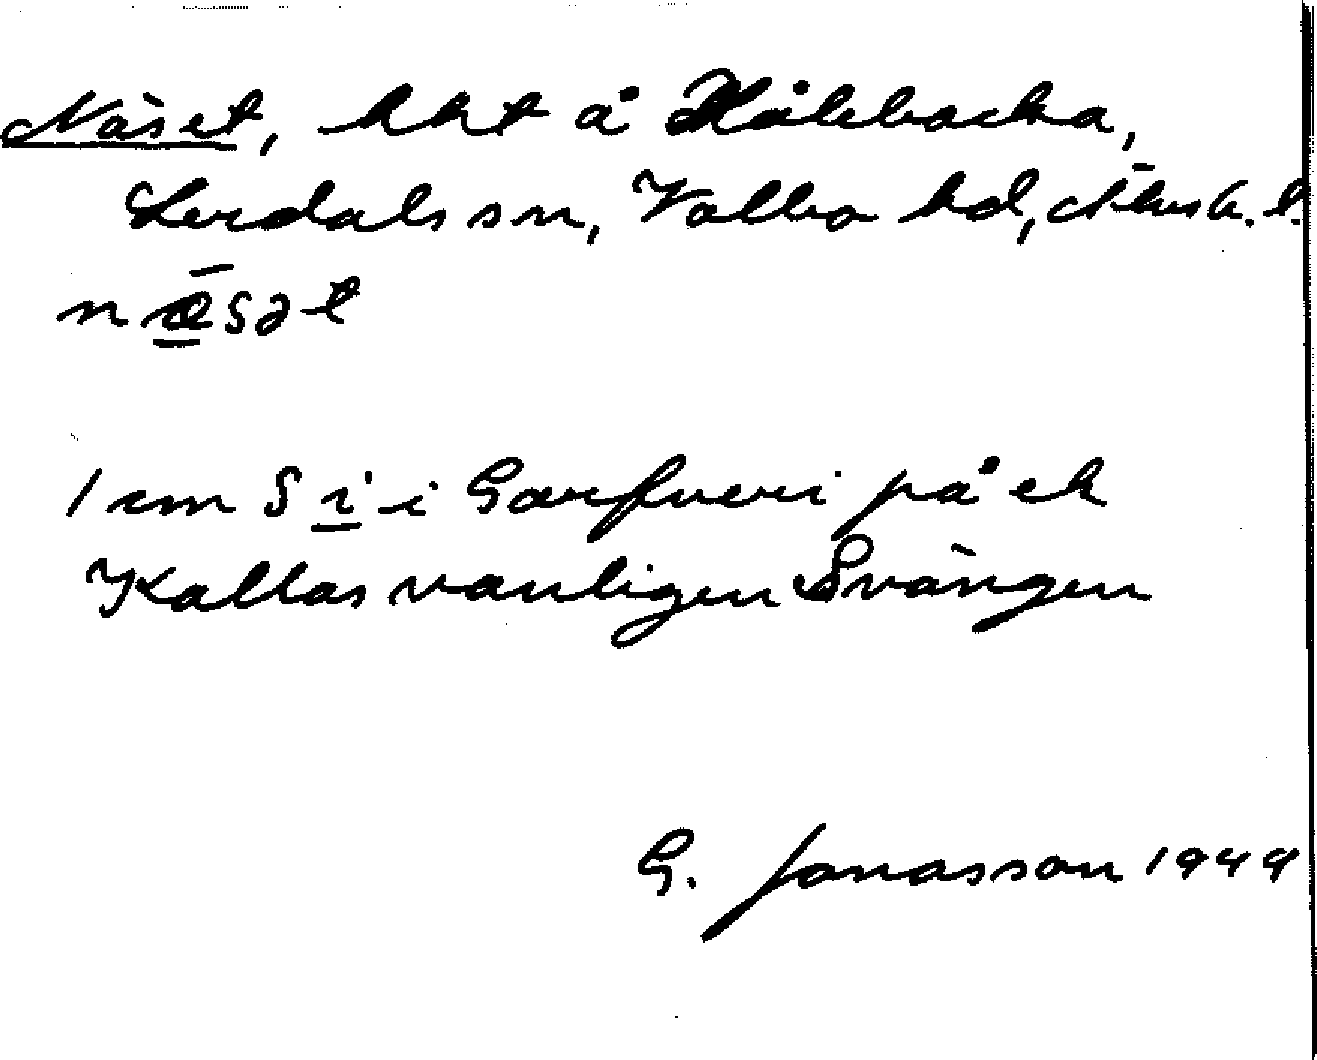 Näset, lht å Hålebacka,
Lerdals sn, Valbo hd, Älvsb. l.
nǣ̱sət
1 cm S i i Garfveri på ek
Kallas vanligen Svängen
G. Jonasson 1949